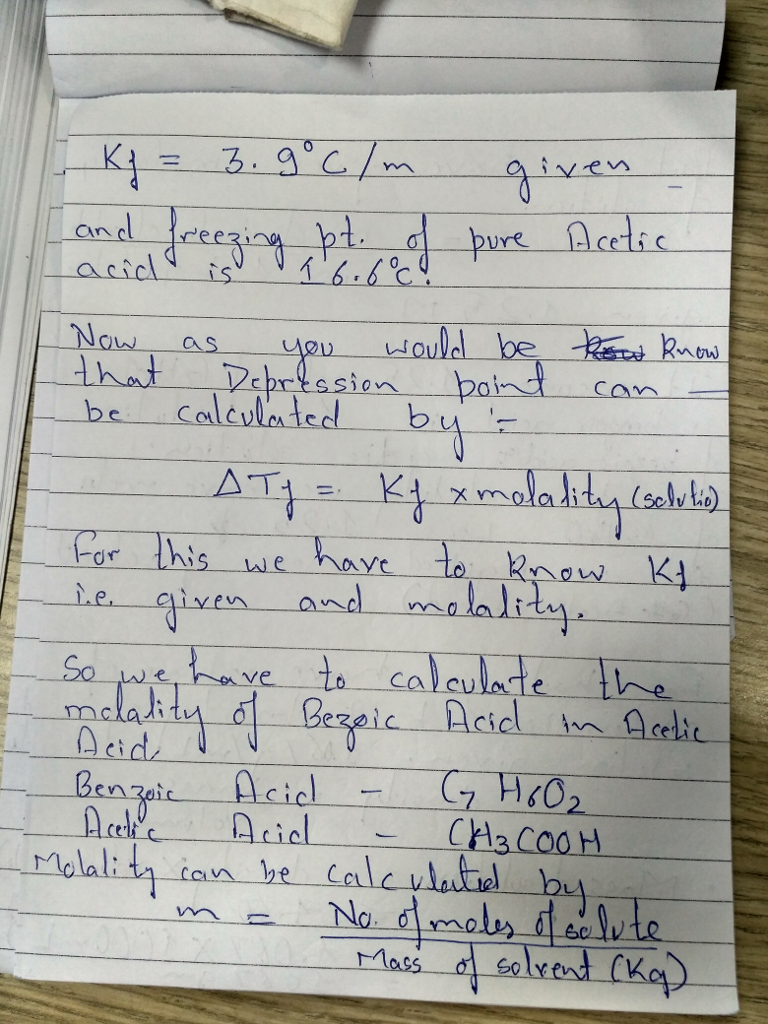 Kf = 3.9°C/m given
and freezing pt. of pure Acetic
acid is 16.6°C.
Now as you would be know
that Depression point can
be calculated by :-
ΔTf = Kf × molality (solutio)
For this we have to know Kf
i.e. given and molality.
So we have to calculate the
molality of Bezoic Acid in Acetic
Acid
Benzoic Acid - C7H6O2
Acetic Acid - CH3COOH
Molality can be calculated by
m = No. of moles of solute
Mass of solvent (Kg)